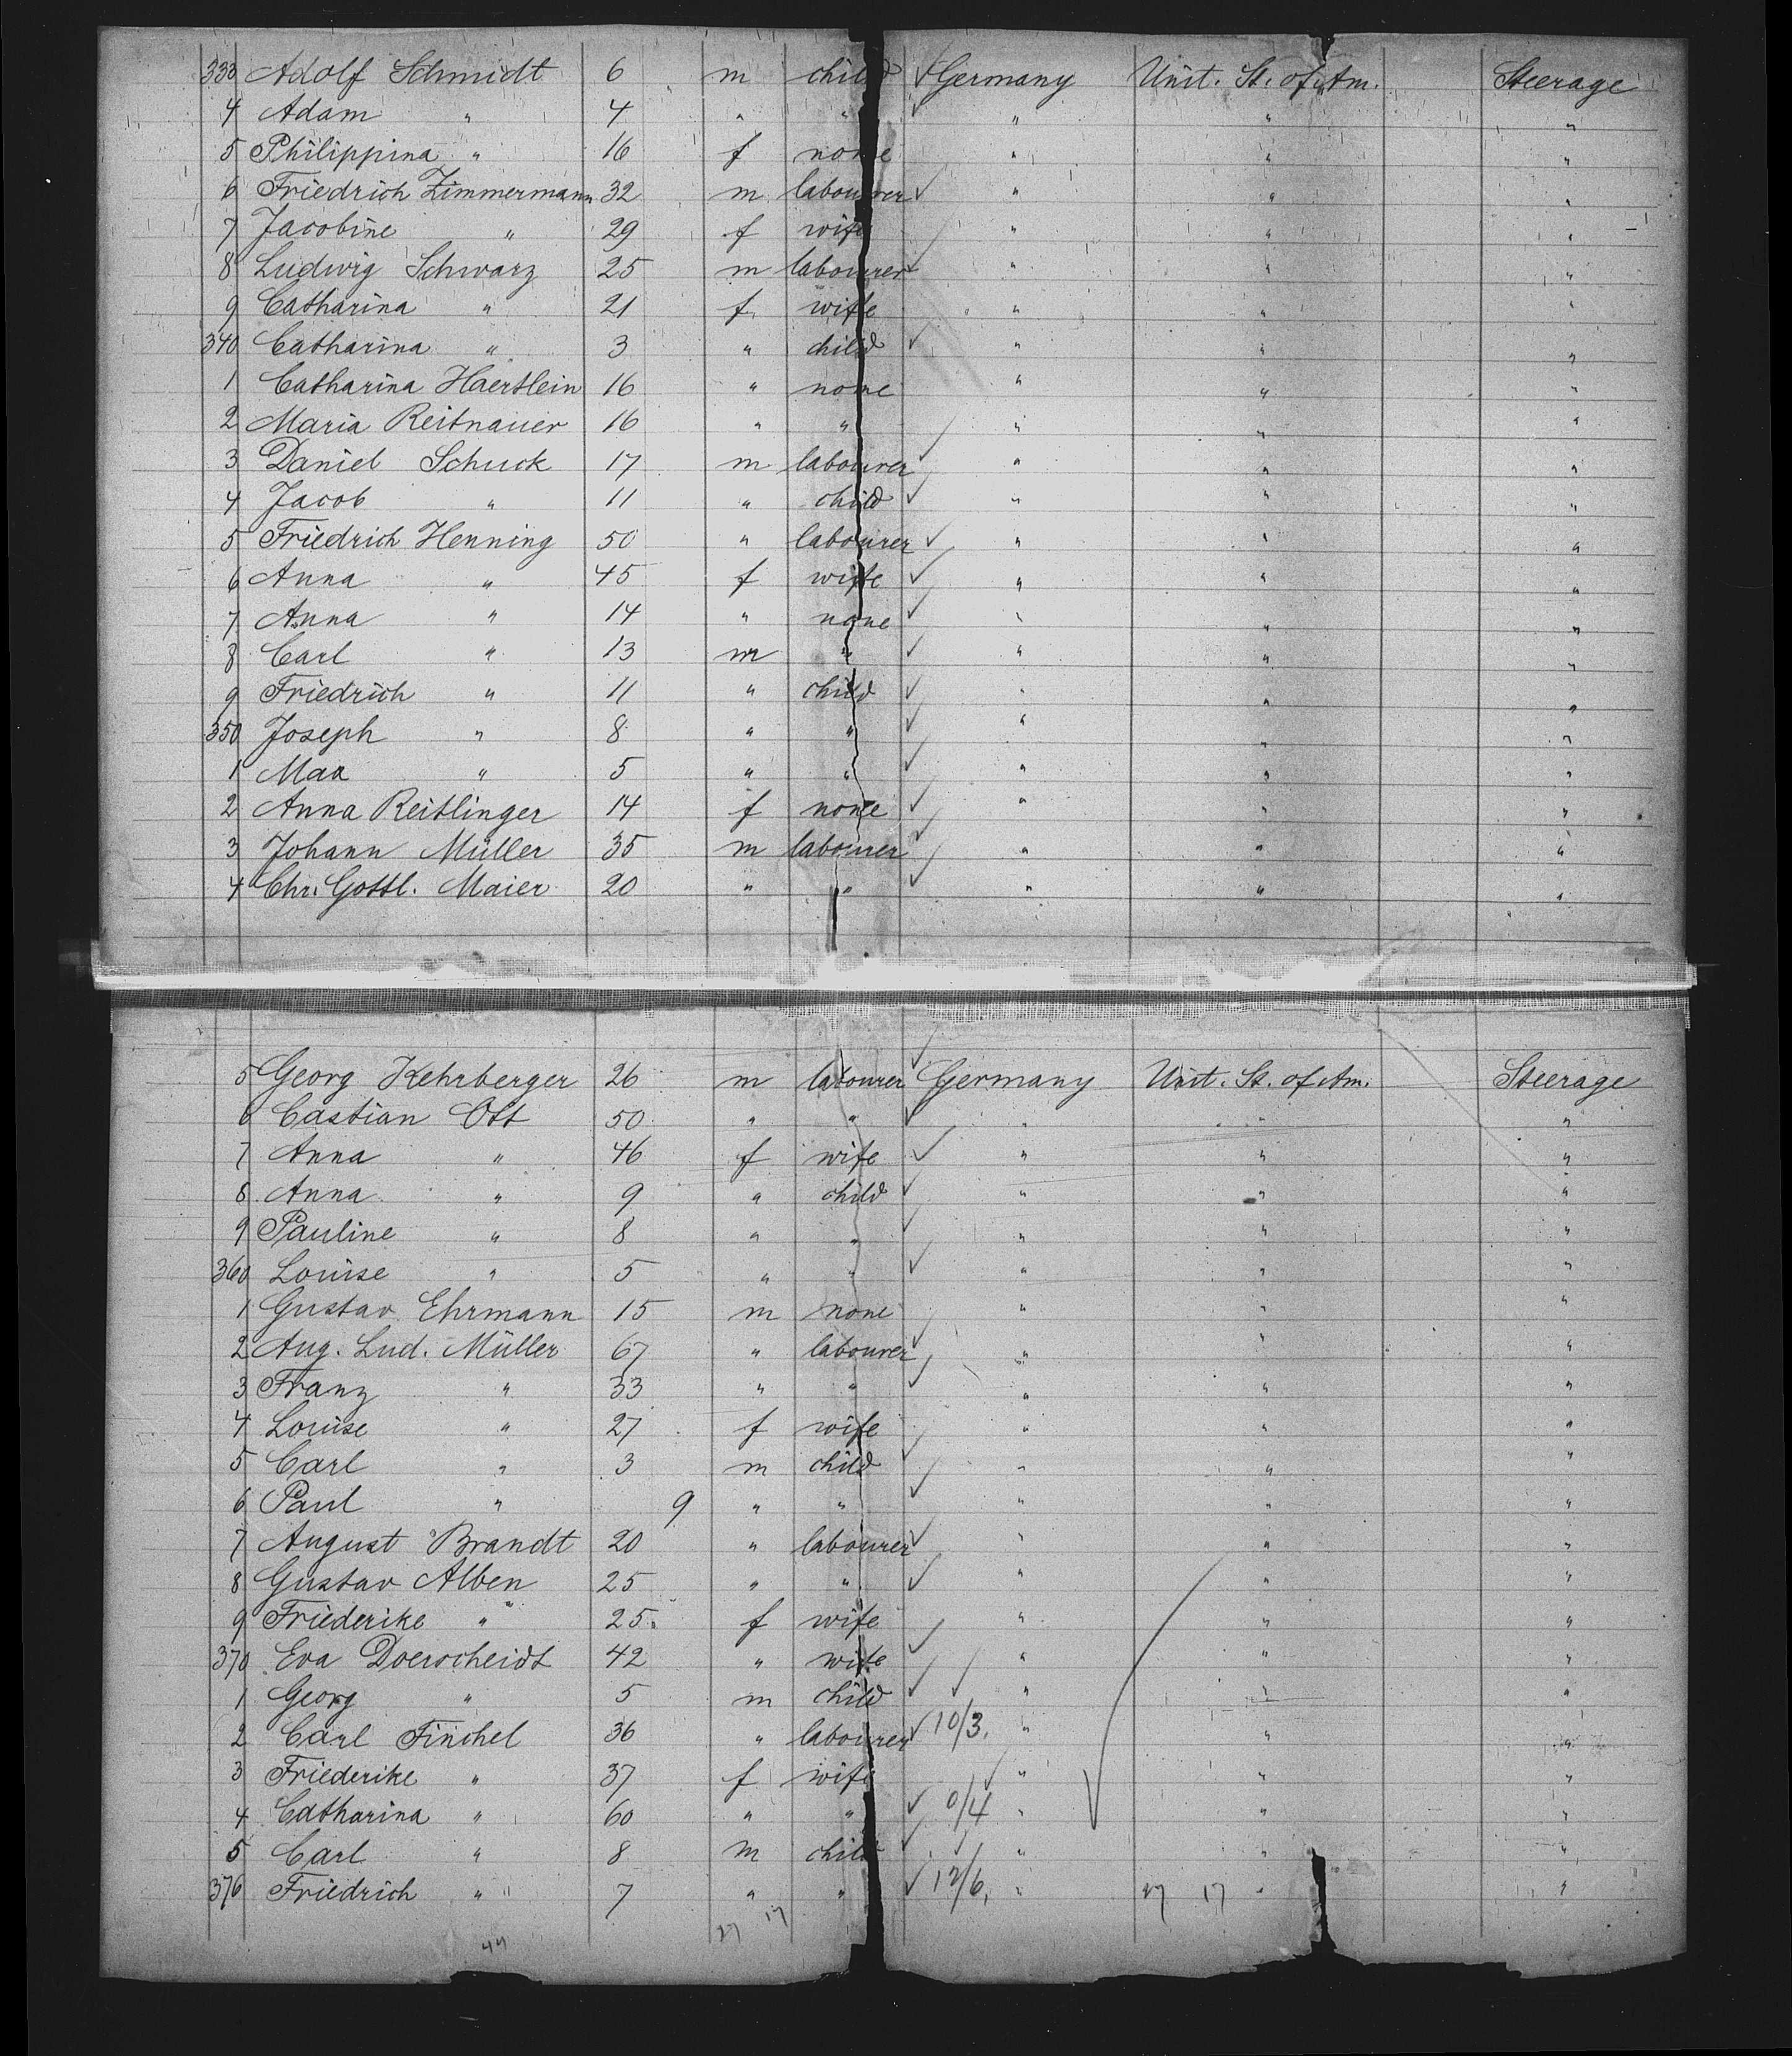 333 Adolf Schmidt 6 m child ✓ Germany Unit. St. of Am. Steerage
4 Adam " 4 " " " " "
5 Philippina " 16 f none " " "
6 Friedrich Zimmermann 32 m labourer ✓ " " "
7 Jacobine " 29 f wife " " "
8 Ludwig Schwarz 25 m labourer ✓ " " "
9 Catharina " 21 f wife " " "
340 Catharina " 3 " child ✓ " " "
1 Catharina Haertlein 16 " none " " "
2 Maria Reitnauer 16 " " " " "
3 Daniel Schuck 17 m labourer ✓ " " "
4 Jacob " 11 " child ✓ " " "
5 Friedrich Henning 50 " labourer ✓ " " "
6 Anna " 45 f wife ✓ " " "
7 Anna " 14 " none ✓ " " "
8 Carl " 13 m " ✓ " " "
9 Friedrich " 11 " child ✓ " " "
350 Joseph " 8 " " ✓ " " "
1 Max " 5 " " ✓ " " "
2 Anna Reitlinger 14 f none ✓ " " "
3 Johann Müller 35 m labourer ✓ " " "
4 Chr. Gottl. Maier 20 " " ✓ " " "
5 Georg Kehrberger 26 m labourer ✓ Germany Unit. St. of Am. Steerage
6 Castian Ott 50 " " ✓ " " "
7 Anna " 46 f wife ✓ " " "
8 Anna " 9 " child ✓ " " "
9 Pauline " 8 " " ✓ " " "
360 Louise " 5 " " ✓ " " "
1 Gustav Ehrmann 15 m none " " "
2 Aug. Lud. Müller 67 " labourer ✓ " " "
3 Franz " 33 " " ✓ " " "
4 Louise " 27 f wife " " "
5 Carl " 3 m child ✓ " " "
6 Paul " 9 " " ✓ " " "
7 August Brandt 20 " labourer ✓ " " "
8 Gustav Alben 25 " " ✓ " " "
9 Friederike " 25 f wife " " "
370 Eva Doerscheidt 42 " wife ✓ " " "
1 Georg " 5 m child ✓ ✓ " " "
2 Carl Finchel 36 " labourer ✓ 10/3. " " "
3 Friederike " 37 f wife ✓ " " "
4 Catharina " 60 " " ✓ 0/4 " " "
5 Carl " 8 m child ✓ ✓ " " "
376 Friedrich " 7 " " ✓ 12/6. " 27 17 " "
27 17
44